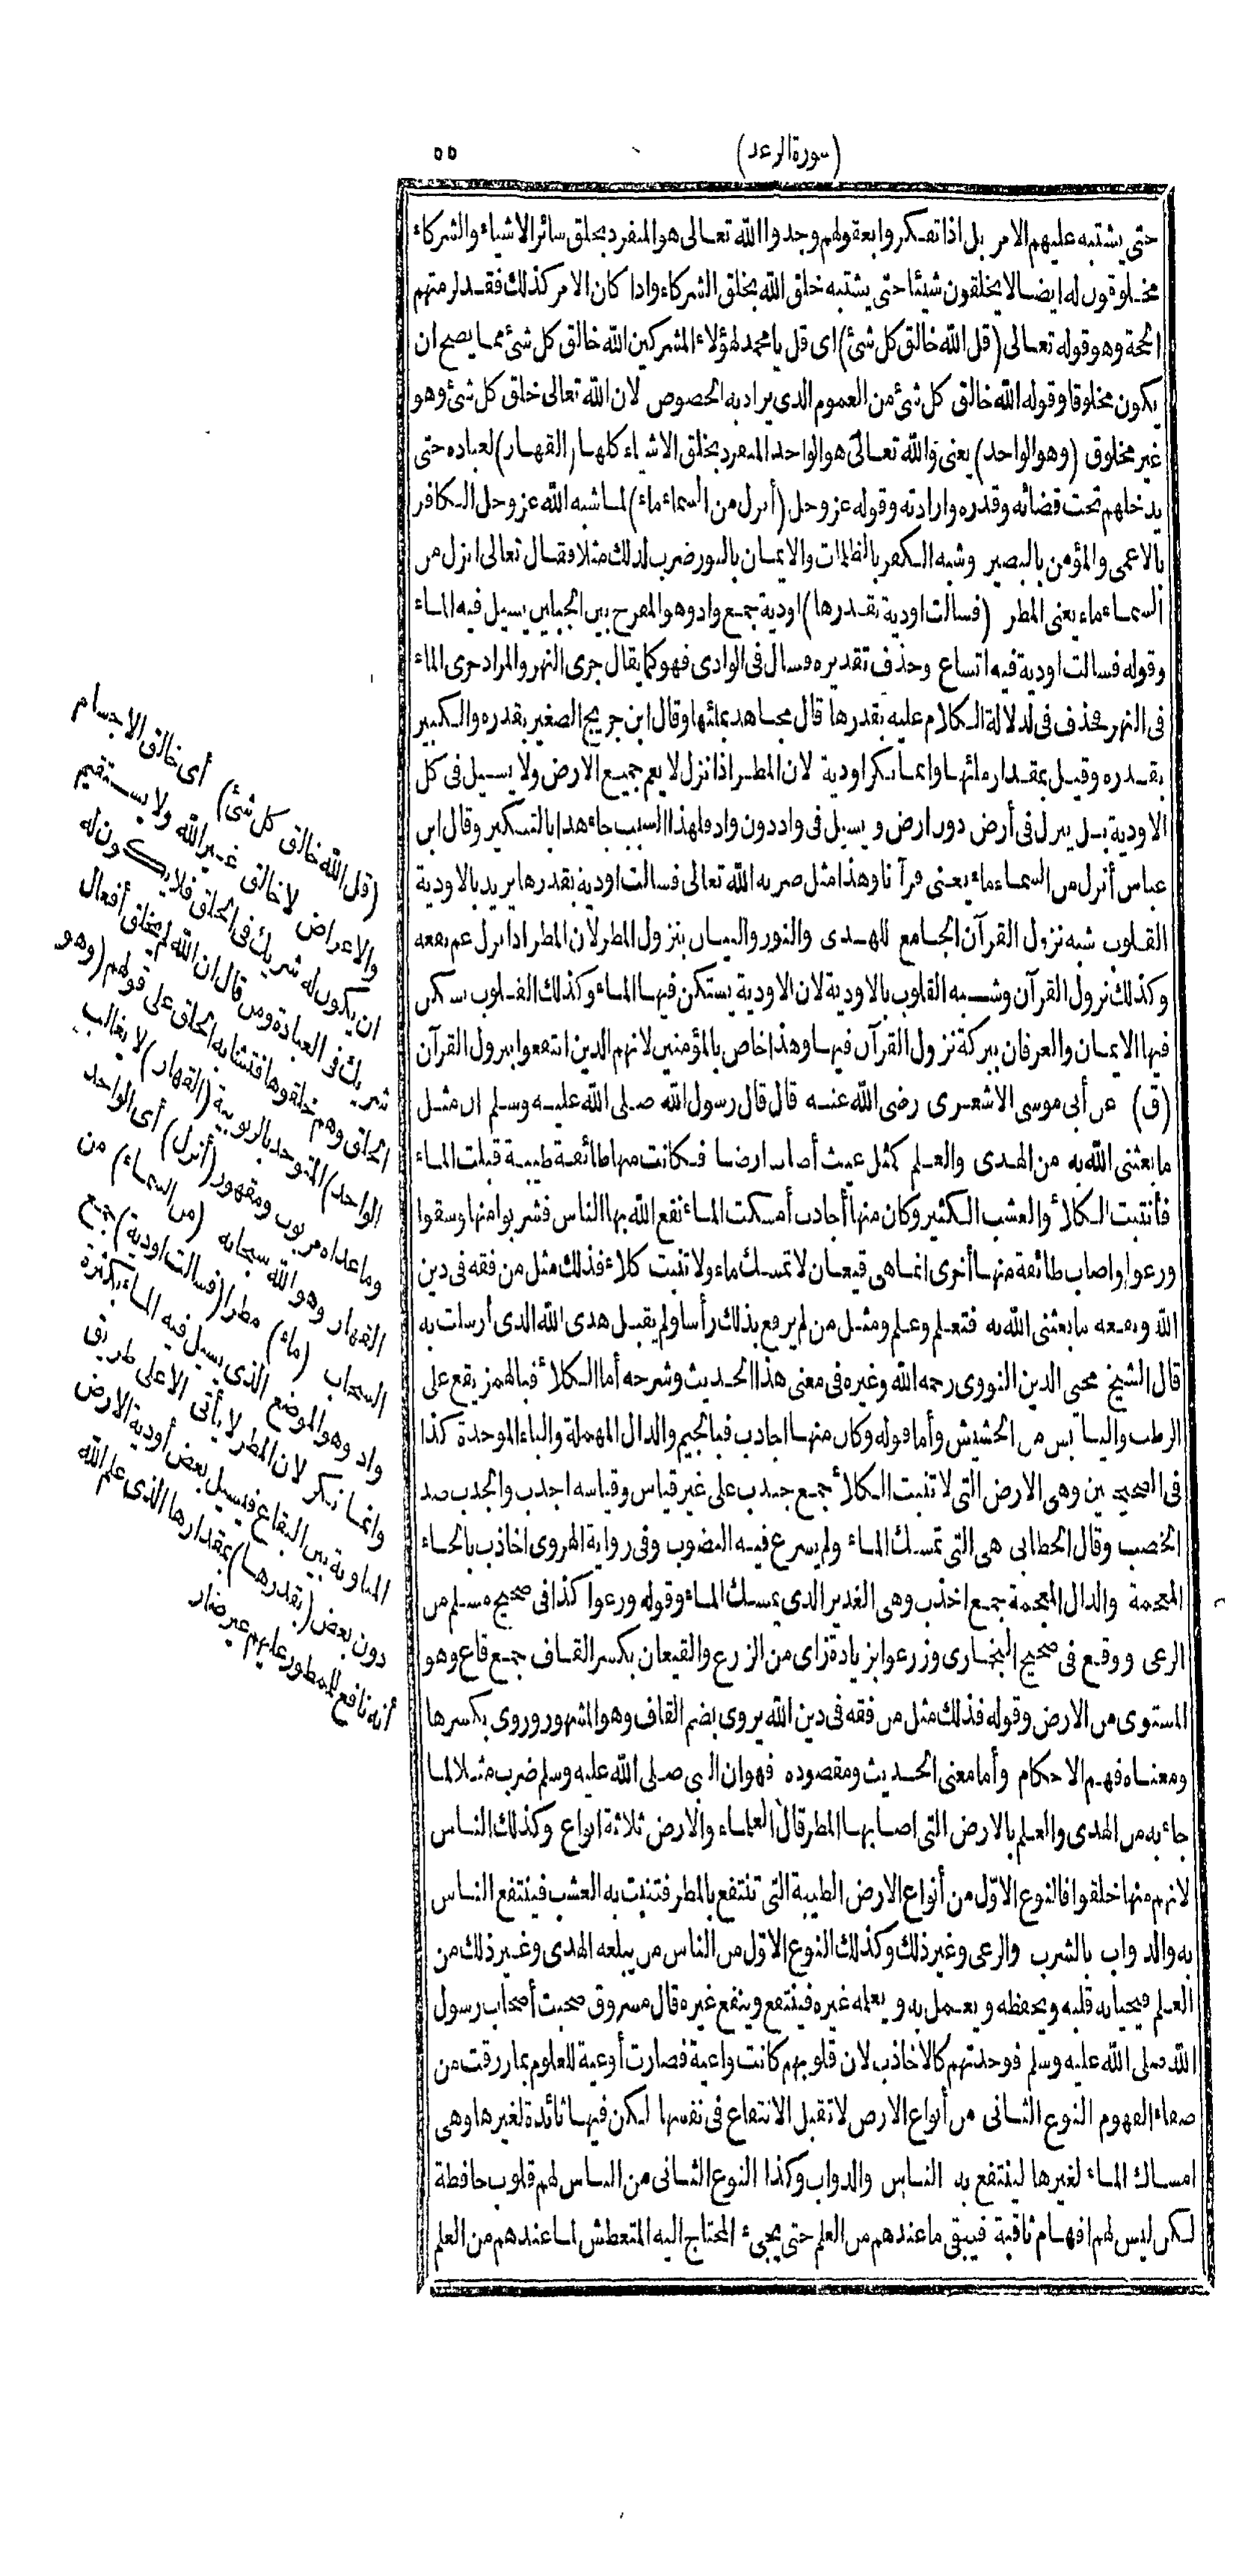 (سورة الرعد)
٥٥
حتى يشتبه عليهم الامر بل اذا تفكروا بعقولهم وجدوا الله تعالى هو المنفرد بخلق سائر الاشياء والشركاء
مخلوقون له ايضا لا يخلقون شيئا حتى يشتبه خلق الله بخلق الشركاء واذا كان الامر كذلك فقد لزمتهم
الحجة وهو قوله تعالى (قل الله خالق كل شئ) اى قل يا محمد لهؤلاء المشركين الله خالق كل شئ مما يصح ان
يكون مخلوقا وقوله الله خالق كل شئ من العموم الذى يراد به الخصوص لان الله تعالى خلق كل شئ وهو
غير مخلوق (وهو الواحد) يعنى والله تعالى هو الواحد المنفرد بخلق الاشياء كلها (القهار) لعباده حتى
يدخلهم تحت قضائه وقدره وارادته وقوله عز وجل (أنزل من السماء ماء) لما شبه الله عز وجل الكافر
بالاعمى والمؤمن بالبصير وشبه الكفر بالظلمات والايمان بالنور ضرب لذلك مثلا فقال تعالى انزل من
السماء ماء يعنى المطر (فسالت اودية بقدرها) اودية جمع واد وهو المفرج بين الجبلين يسيل فيه الماء
وقوله فسالت اودية فيه اتساع وحذف تقديره فسال فى الوادى فهو كما يقال جرى النهر والمراد جرى الماء
فى النهر فحذف فى لدلالة الكلام عليه بقدرها قال مجاهد بملئها وقال ابن جريج الصغير بقدره والكبير
بقدره وقيل بمقدار ملئها وانما نكر اودية لان المطر اذا نزل لا يعم جميع الارض ولا يسيل فى كل
الاودية بل ينزل فى أرض دون ارض ويسيل فى واد دون واد فلهذا السبب جاء هذا بالتنكير وقال ابن
عباس أنزل من السماء ماء يعنى قرآنا وهذا مثل ضربه الله تعالى فسالت اودية بقدرها يريد بالاودية
القلوب شبه نزول القرآن الجامع للهدى والنور والبيان بنزول المطر لان المطر اذا نزل عم نفعه
وكذلك نزول القرآن وشبه القلوب بالاودية لان الاودية يستكن فيها الماء وكذلك القلوب يسكن
فيها الايمان والعرفان ببركة نزول القرآن فيها وهذا خاص بالمؤمنين لانهم الذين انتفعوا بنزول القرآن
(ق) عن أبى موسى الاشعرى رضى الله عنه قال قال رسول الله صلى الله عليه وسلم ان مثل
ما بعثنى الله به من الهدى والعلم كمثل غيث أصاب ارضا فكانت منها طائفة طيبة قبلت الماء
فأنبتت الكلأ والعشب الكثير وكان منها أجادب أمسكت الماء نفع الله بها الناس فشربوا منها وسقوا
ورعوا واصاب طائفة منها أخرى انما هى قيعان لا تمسك ماء ولا تنبت كلاء فذلك مثل من فقه فى دين
الله ونفعه ما بعثنى الله به فتعلم وعلم ومثل من لم يرفع بذلك رأسا ولم يقبل هدى الله الذى أرسلت به
قال الشيخ محيى الدين النووى رحمه الله وغيره فى معنى هذا الحديث وشرحه أما الكلأ فبالهمز يقع على
الرطب واليابس من الحشيش وأما قوله وكان منها اجادب فبالجيم والدال المهملة والباء الموحدة كذا
فى الصحيحين وهى الارض التى لا تنبت الكلأ جمع جدب على غير قياس وقياسه اجدب والجدب ضد
الخصب وقال الخطابى هى التى تمسك الماء ولم يسرع فيه النضوب وفى رواية الهروى اخاذب بالخاء
المعجمة والدال المعجمة جمع اخذب وهى الغدير الذى يمسك الماء وقوله ورعوا كذا فى صحيح مسلم من
الرعى ووقع فى صحيح البخارى وزرعوا بزيادة زاى من الزرع والقيعان بكسر القاف جمع قاع وهو
المستوى من الارض وقوله فذلك مثل من فقه فى دين الله يروى بضم القاف وهو المشهور وروى بكسرها
ومعناه فهم الاحكام وأما معنى الحديث ومقصوده فهو ان النبى صلى الله عليه وسلم ضرب مثلا لما
جاء به من الهدى والعلم بالارض التى اصابها المطر قال العلماء والارض ثلاثة انواع وكذلك الناس
لانهم منها خلقوا فالنوع الاول من أنواع الارض الطيبة التى تنتفع بالمطر فتنبت به العشب فينتفع الناس
به والدواب بالشرب والرعى وغير ذلك وكذلك النوع الاول من الناس من يبلغه الهدى وغير ذلك من
العلم فيحيا به قلبه ويحفظه ويعمل به ويعلمه غيره فينتفع وينفع غيره قال مسروق صحبت أصحاب رسول
الله صلى الله عليه وسلم فوجدتهم كالاخاذب لان قلوبهم كانت واعية فصارت أوعية للعلوم بما رزقت من
صفاء الفهوم النوع الثانى من أنواع الارض لا تقبل الانتفاع فى نفسها لكن فيها فائدة لغيرها وهى
امساك الماء لغيرها لينتفع به الناس والدواب وكذا النوع الثانى من الناس لهم قلوب حافظة
لكن ليس لهم افهام ثاقبة فيبقى ما عندهم من العلم حتى يجىء المحتاج اليه المتعطش لما عندهم من العلم
(قل الله خالق كل شئ) أى خالق الاجسام
والاعراض لا خالق غير الله ولا يستقيم
ان يكون له شريك فى الخلق فلا يكون له
شريك فى العبادة ومن قال ان الله لم يخلق أفعال
الخلق وهم خلقوها فتشابه الخلق على قولهم (وهو
الواحد) المتوحد بالربوبية (القهار) لا يغالب
وما عداه مربوب ومقهور (أنزل) أى الواحد
القهار وهو الله سبحانه (من السماء) من
السحاب (ماء) مطرا (فسالت اودية) جمع
واد وهو الموضع الذى يسيل فيه الماء بكثرة
وانما نكر لان المطر لا يأتى الا على طريق
المناوبة بين البقاع فيسيل بعض أودية الارض
دون بعض (بقدرها) بمقدارها الذى علم الله
أنه نافع للممطور عليهم غير ضار